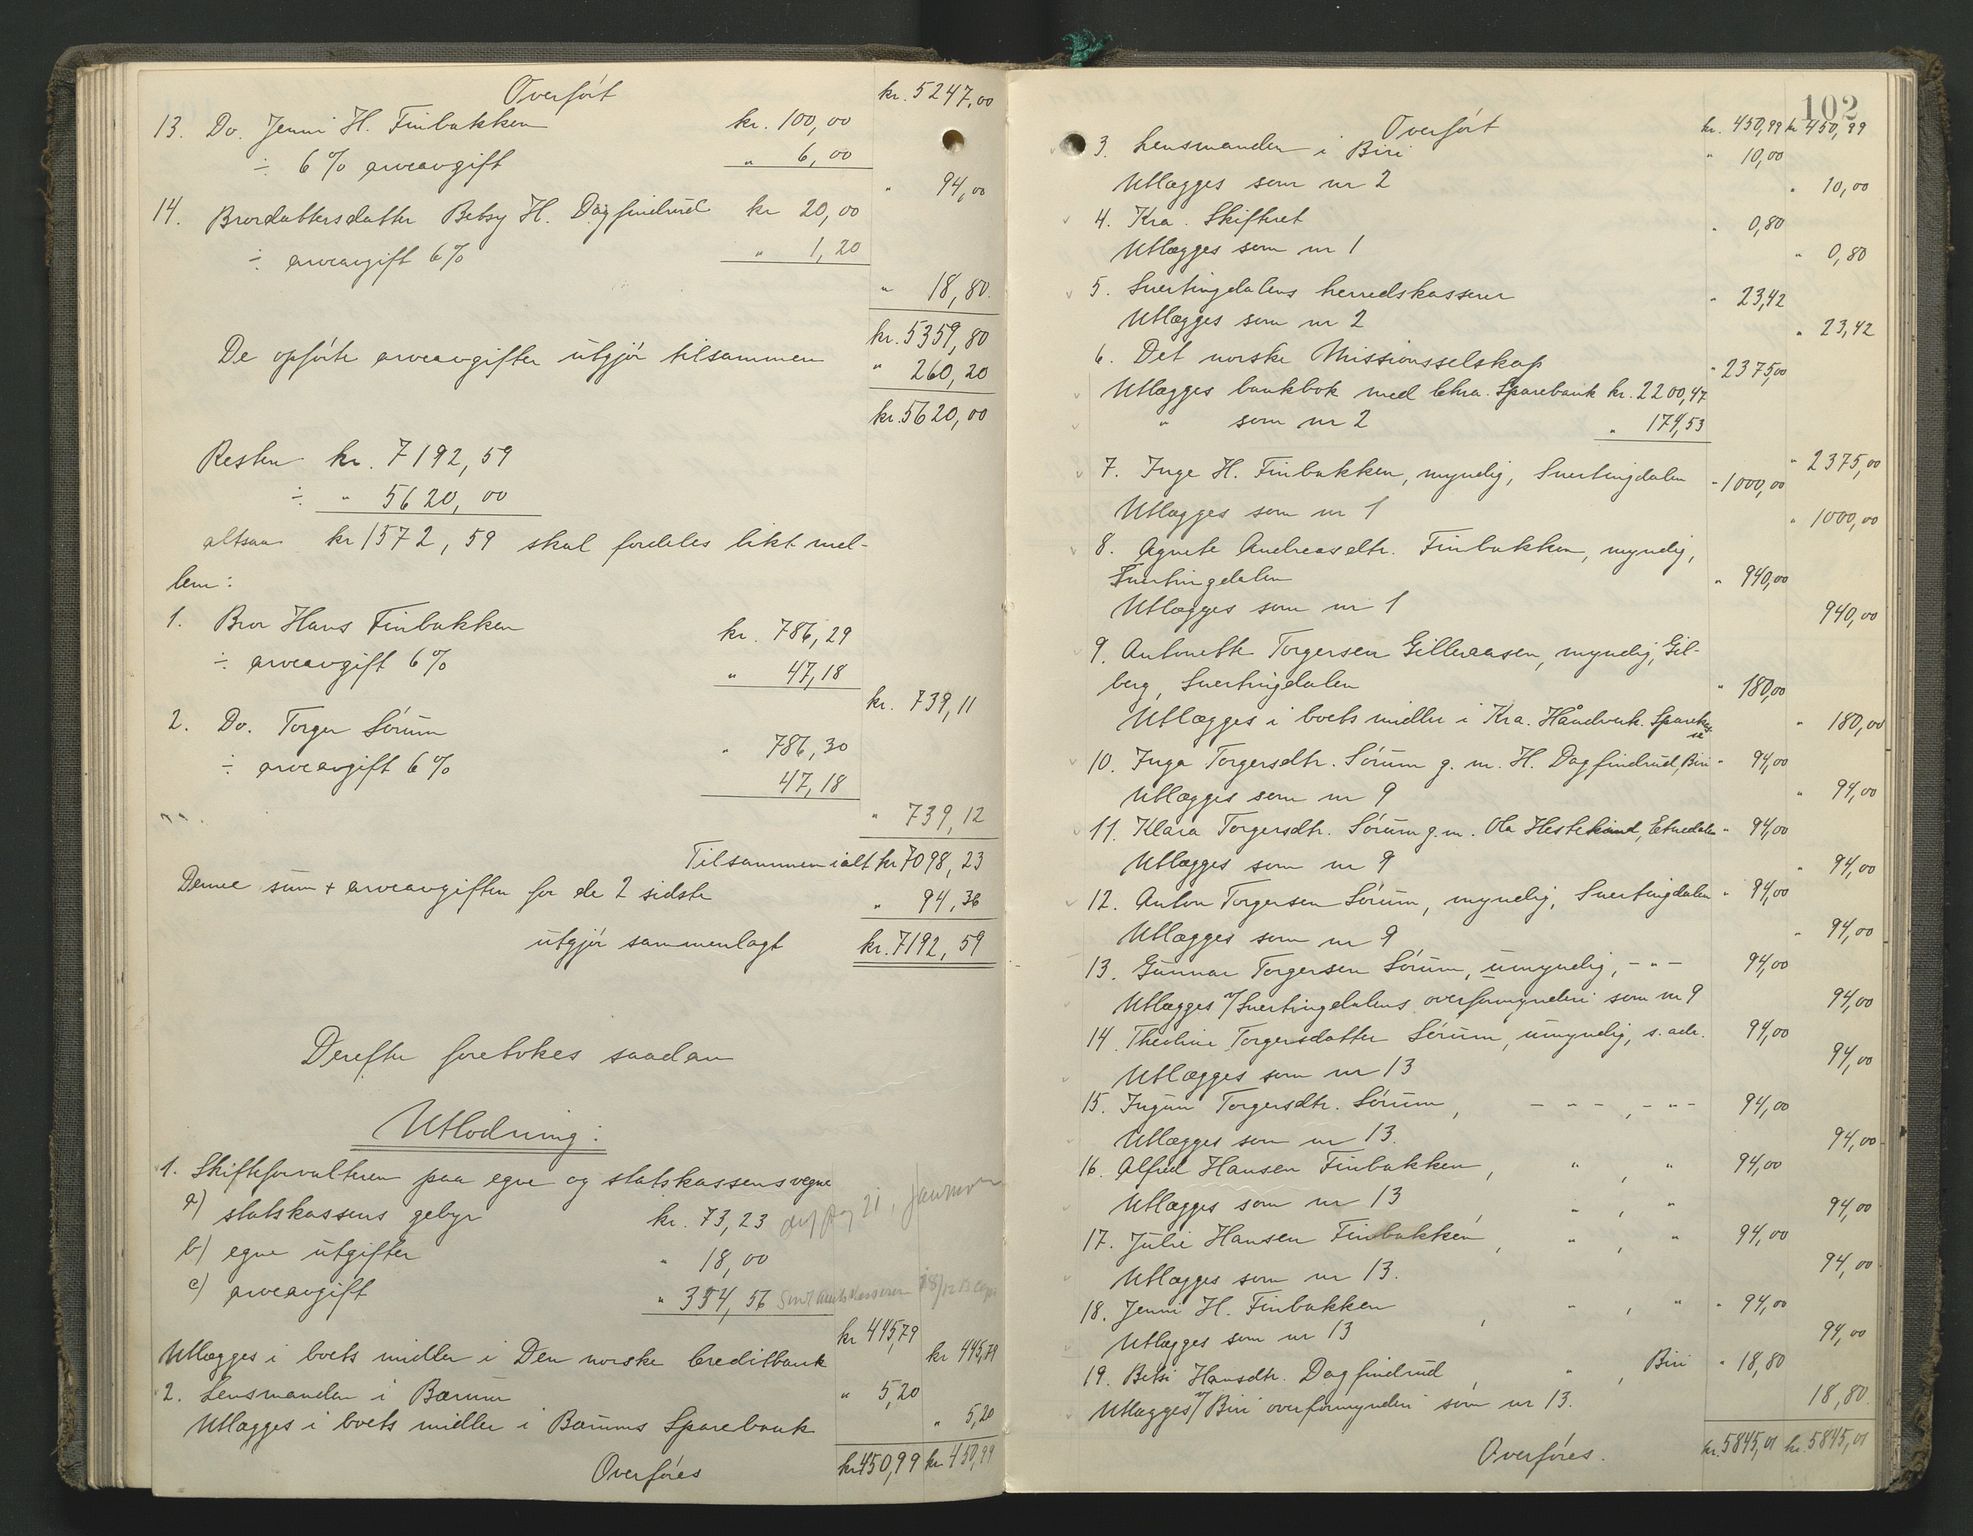 Overført kr. 5247,00
13. Do. Jenni H. Finbakken kr. 100,00
÷ 6 % arveavgift " 6,00
" 94,00
14. Brordattersdatter Betsy H. Dagfindrud kr 20,00
÷ arveavgift 6 % " 1,20
" 18,80
kr. 5359,80
De opførte arveavgifter utgjør tilsammen " 260,20
kr. 5620,00
Resten kr. 7192,59
÷ " 5620,00
altsaa kr 1572,59 skal fordeles likt mel-
lem:
1. Bror Hans Finbakken kr. 786,29
÷ arveavgift 6 % " 47,18
kr. 739,11
2. Do. Torger Sørum " 786,30
÷ arveavgift 6 % 47,18
" 739,12
Tilsammen ialt kr 7098,23
Denne sum + arveavgiften for de 2 sidste " 94,36
utgjør sammenlagt kr. 7192,59
Derefter foretokes saadan
Utlodning:
1. Skifteforvalteren paa egne og statskassens vegne
a) statskassens gebyr kr. 73,23
b) egne utgifter " 18,00
c) arveavgift " 354,56
kr 445,79
Utlægges i boets midler i Den norske Creditbank kr 445,79
2. Lensmanden i Bærum " 5,20
Utlægges i boets midler i Bærums Sparebank " 5,20
Overføres kr 450,99 kr. 450,99
102
Overført kr. 450,99 kr 450,99
3. Lensmanden i Biri " 10,00
Utlægges som nr 2 " 10,00
4. Kra. Skifteret " 0,80
Utlægges som nr 1 " 0,80
5. Snertingdalens herredskasserer " 23,42
Utlægges som nr 2 " 23,42
6. Det norske Missionsselskap " 2375,00
Utlægges bankbok med Chra. Sparebank kr. 2200,47
" som nr 2 " 174,53
" 2375,00
7. Inge H. Finbakken, myndig, Snertingdalen " 1000,00
Utlægges som nr 1 " 1000,00
8. Agnete Andreasdtr. Finbakken, myndig,
Snertingdalen " 940,00
Utlægges som nr 1 940,00
9. Antonette Torgersen Gilleraasen, myndig, Gil-
berg, Snertingdalen " 180,00
Utlægges i boets midler i Kra. Håndverk. Sparekas-
se " 180,00
10. Inga Torgersdtr. Sørum g. m. H. Dagfindrud, Biri " 94,00
Utlægges som nr 9 " 94,00
11. Klara Torgersdtr. Sørum g. m. Ola Hestekind, Etnedalen " 94,00
Utlægges som nr 9 " 94,00
12. Anton Torgersen Sørum, myndig, Snertingdalen " 94,00
Utlægges som nr 9 " 94,00
13. Gunnar Torgersen Sørum, umyndig, - " - 94,00
Utlægges v/Snertingdalens overformynderi som nr 9 94,00
14. Theoline Torgersdatter Sørum, umyndig, s. adr. 94,00
Utlægges som nr 13 94,00
15. Ingun Torgersdtr. Sørum, - " - , - " - 94,00
Utlægges som nr 13. 94,00
16. Alfred Hansen Finbakken, " , " 94,00
Utlægges som nr 13 , " , " 94,00
17. Julie Hansen Finbakken , " , " 94,00
Utlægges som nr 13. 94,00
18. Jenni H. Finbakken , " , " " 94,00
Utlægges som nr 13 94,00
19. Betsi Hansdtr. Dagfindrud , " , Biri " 18,80
Utlægges v/Biri overformynderi som nr 13. 18,80
Overføres. kr. 5845,01 kr. 5845,01